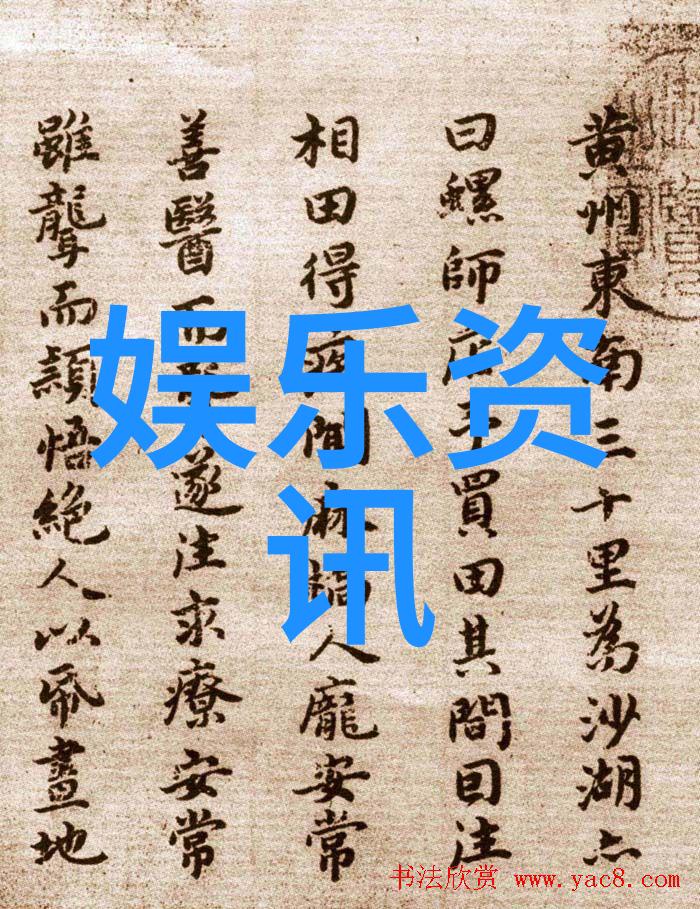 黄州東南三十里為沙湖亦
曰螺師店予買田其間因往
相田得疾聞麻橋人龐安常
善醫而遂往求療安常
雖聾而穎悟絕人以紙畫地
娱乐资
讯
书法欣赏 www.yac8.com